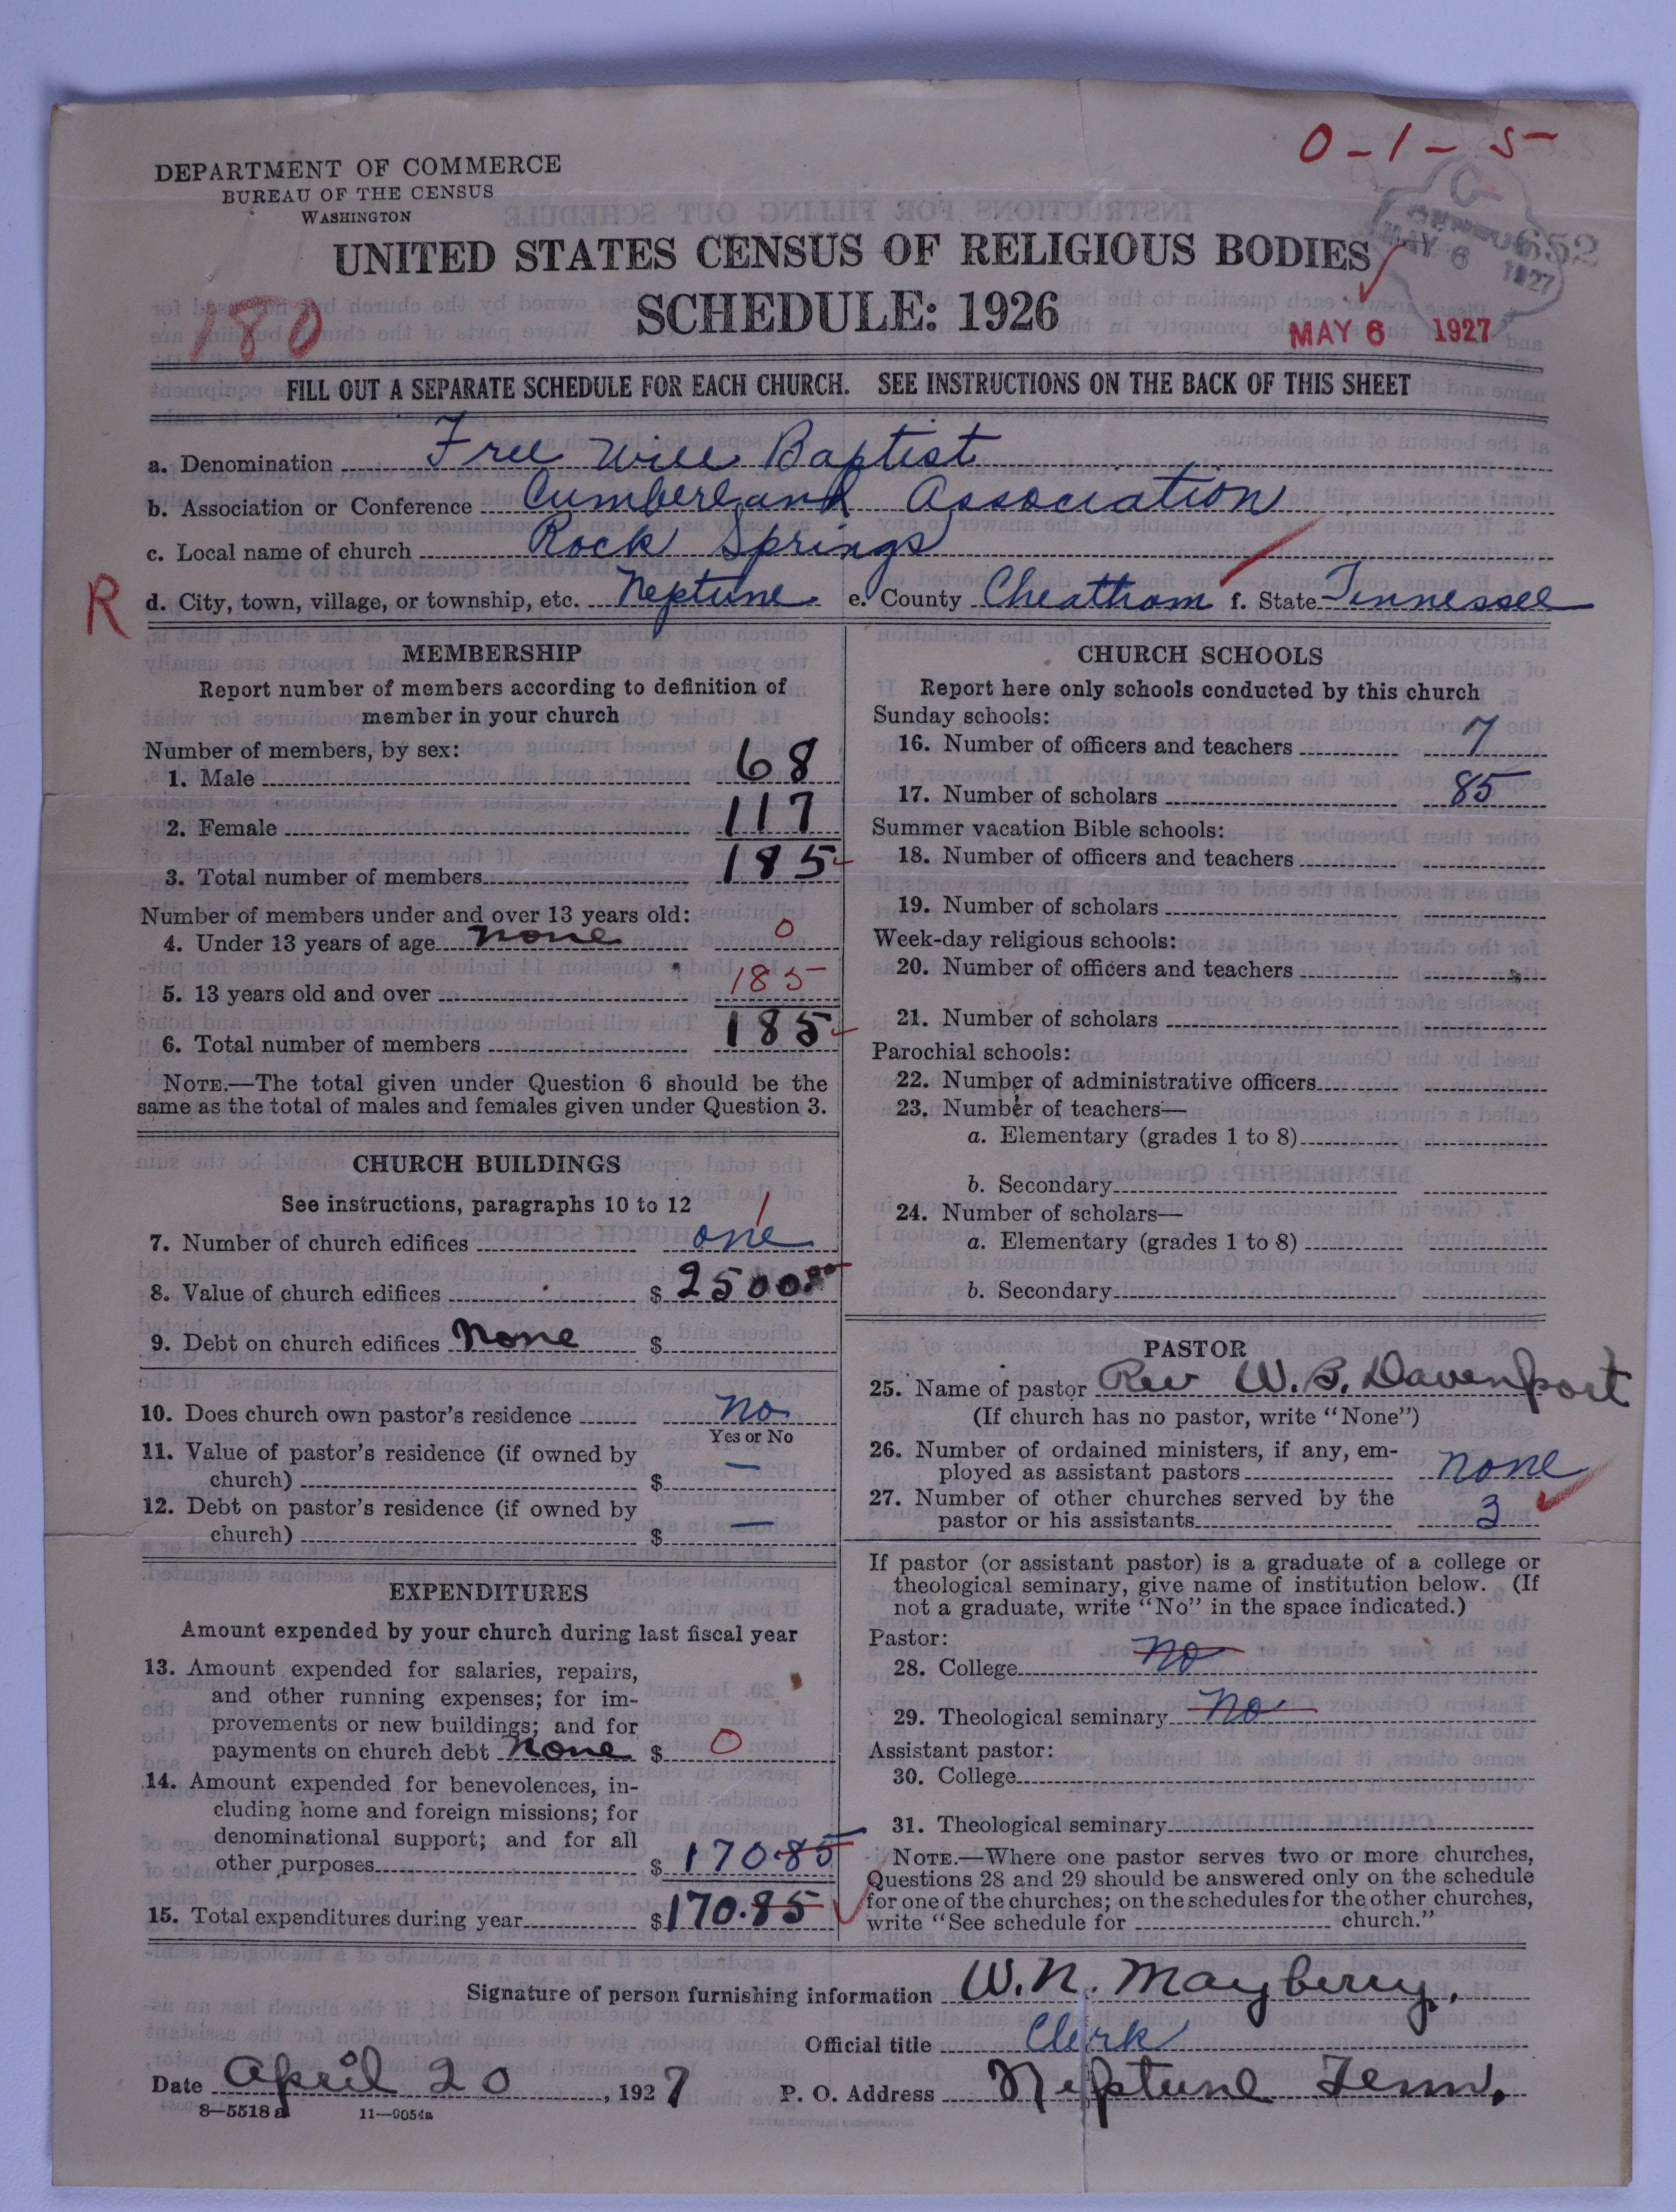 0-1-5
DEPARTMENT OF COMMERCE
BUREAU OF THE CENSUS
WASHINGTON
CENSUS 652
MAY 6 1927
UNITED STATES CENSUS OF RELIGIOUS BODIES
SCHEDULE: 1926
180
MAY 6 1927
FILL OUT A SEPARATE SCHEDULE FOR EACH CHURCH. SEE INSTRUCTIONS ON THE BACK OF THIS SHEET
a. Denomination Free Will Baptist
b. Association or Conference Cumberland Association
c. Local name of church Rock Springs
R
d. City, town, village, or township, etc. Neptune e. County Cheatham f. State Tennessee
MEMBERSHIP
Report number of members according to definition of
member in your church
Number of members, by sex:
1. Male 68
2. Female 117
3. Total number of members 185
Number of members under and over 13 years old:
4. Under 13 years of age none 0
5. 13 years old and over 185
6. Total number of members 185
NOTE.—The total given under Question 6 should be the
same as the total of males and females given under Question 3.
CHURCH BUILDINGS
See instructions, paragraphs 10 to 12
1
7. Number of church edifices one
8. Value of church edifices $ 2500.00
9. Debt on church edifices none $
10. Does church own pastor's residence no
Yes or No
11. Value of pastor's residence (if owned by
church) $ —
12. Debt on pastor's residence (if owned by
church) $ —
EXPENDITURES
Amount expended by your church during last fiscal year
13. Amount expended for salaries, repairs,
and other running expenses; for im-
provements or new buildings; and for
payments on church debt none $ 0
14. Amount expended for benevolences, in-
cluding home and foreign missions; for
denominational support; and for all
other purposes $ 170.85
15. Total expenditures during year $170.85
CHURCH SCHOOLS
Report here only schools conducted by this church
Sunday schools:
16. Number of officers and teachers 7
17. Number of scholars 85
Summer vacation Bible schools:
18. Number of officers and teachers
19. Number of scholars
Week-day religious schools:
20. Number of officers and teachers
21. Number of scholars
Parochial schools:
22. Number of administrative officers
23. Number of teachers—
a. Elementary (grades 1 to 8)
b. Secondary
24. Number of scholars—
a. Elementary (grades 1 to 8)
b. Secondary
PASTOR
25. Name of pastor Rev W. B. Davenport
(If church has no pastor, write "None")
26. Number of ordained ministers, if any, em-
ployed as assistant pastors none
27. Number of other churches served by the
pastor or his assistants 3
If pastor (or assistant pastor) is a graduate of a college or
theological seminary, give name of institution below. (If
not a graduate, write "No" in the space indicated.)
Pastor:
28. College no
29. Theological seminary no
Assistant pastor:
30. College
31. Theological seminary
NOTE.—Where one pastor serves two or more churches,
Questions 28 and 29 should be answered only on the schedule
for one of the churches; on the schedules for the other churches,
write "See schedule for church."
Signature of person furnishing information W. N. Mayberry,
Official title Clerk
Date April 20, 1927 P. O. Address Neptune Tenn,
8—5518a 11—9054a